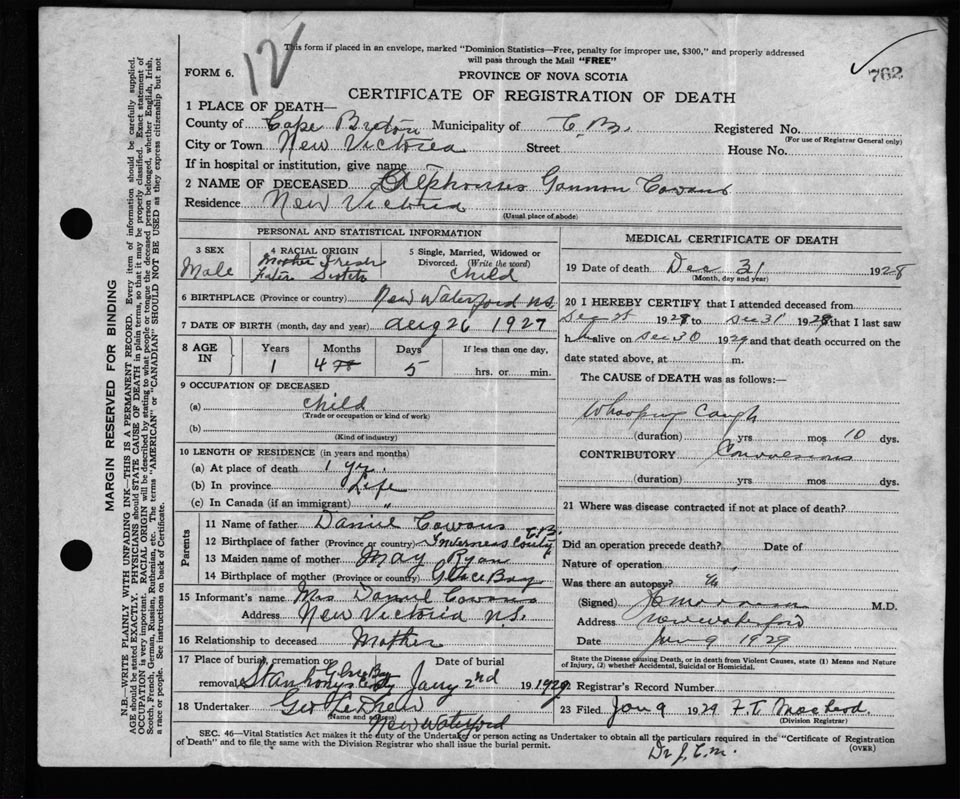 12
This form if placed in an envelope, marked "Dominion Statistics—Free, penalty for improper use, $300," and properly addressed
will pass through the Mail "FREE"
762
FORM 6.
PROVINCE OF NOVA SCOTIA
CERTIFICATE OF REGISTRATION OF DEATH
1 PLACE OF DEATH—
County of Cape Breton Municipality of C.B. Registered No.
(For use of Registrar General only)
City or Town New Victoria Street House No.
If in hospital or institution, give name
2 NAME OF DECEASED Alphonsus Gannon Cowans
Residence New Victoria
(Usual place of abode)
PERSONAL AND STATISTICAL INFORMATION
3 SEX
Male
4 RACIAL ORIGIN
Mother Irish
5 Single, Married, Widowed or
Divorced. (Write the word)
Child
6 BIRTHPLACE (Province or country) New Waterford N.S.
7 DATE OF BIRTH (month, day and year) Aug 26 1927
8 AGE IN
Years Months Days If less than one day,
1 4 5 hrs. or min.
9 OCCUPATION OF DECEASED
(a) child
(Trade or occupation or kind of work)
(b)
(Kind of industry)
10 LENGTH OF RESIDENCE (in years and months)
(a) At place of death 1 yr.
(b) In province Life
(c) In Canada (if an immigrant) "
Parents
11 Name of father Daniel Cowans
12 Birthplace of father (Province or country) Inverness County C.B.
13 Maiden name of mother May Ryan
14 Birthplace of mother (Province or country) Glace Bay
15 Informant's name Mrs Daniel Cowans
Address New Victoria N.S.
16 Relationship to deceased Mother
17 Place of burial, cremation or Date of burial
removal Glace Bay Jany 2nd 19 1929
18 Undertaker Geo
(Name and address)
New Waterford
MEDICAL CERTIFICATE OF DEATH
19 Date of death Dec 31 1928
(Month, day and year)
20 I HEREBY CERTIFY that I attended deceased from
Dec 28 1928 to Dec 31 1928 that I last saw
him alive on Dec 30 192 and that death occurred on the
date stated above, at m.
The CAUSE of DEATH was as follows:
Whooping Cough
(duration) yrs mos 10 dys.
CONTRIBUTORY Convulsions
(duration) yrs mos dys.
21 Where was disease contracted if not at place of death?
Did an operation precede death? Date of
Nature of operation
Was there an autopsy?
(Signed) M.D.
Address New Waterford
Date Jan 9 1929
State the Disease causing Death, or in death from Violent Causes, state (1) Means and Nature
of Injury, (2) whether Accidental, Suicidal or Homicidal.
22 Registrar's Record Number
23 Filed Jan 9 1929 F.T. MacLeod
(Division Registrar)
SEC. 46—Vital Statistics Act makes it the duty of the Undertaker or person acting as Undertaker to obtain all the particulars required in the "Certificate of Registration
of Death" and to file the same with the Division Registrar who shall issue the burial permit.
(OVER)
Dr J. C. M.
MARGIN RESERVED FOR BINDING
N.B.—WRITE PLAINLY WITH UNFADING INK—THIS IS A PERMANENT RECORD. Every item of information should be carefully supplied.
AGE should be stated EXACTLY. PHYSICIANS should STATE CAUSE OF DEATH in plain terms, so that it may be properly classified. Exact statement of
OCCUPATION is very important. RACIAL ORIGIN will be described by stating to what people or tongue the deceased person belonged, whether English, Irish,
Scotch, French, German, Russian, Ruthenian, etc. The terms "AMERICAN" or "CANADIAN" SHOULD NOT BE USED as they express citizenship but not
a race or people. See instructions on back of Certificate.